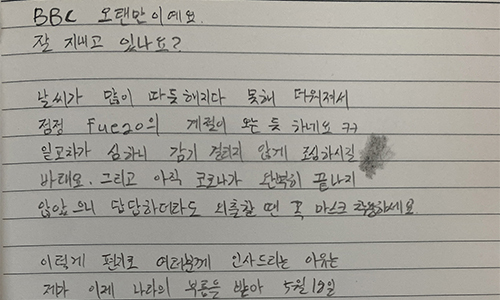 BBC 오랜만이예요.
잘 지내고 있나요?
날씨가 많이 따듯해지다 못해 더워져서
점점 Fuego의 계절이 오는 듯 하네요 ㅋㅋ
일교차가 심하니 감기 걸리지 않게 조심하시길
바래요. 그리고 아직 코로나가 완벽히 끝나지
않았으니 답답하더라도 외출할 땐 꼭 마스크 착용하세요
이렇게 편지로 여러분께 인사드리는 이유는
제가 이제 나라의 부름을 받아 5월 12일